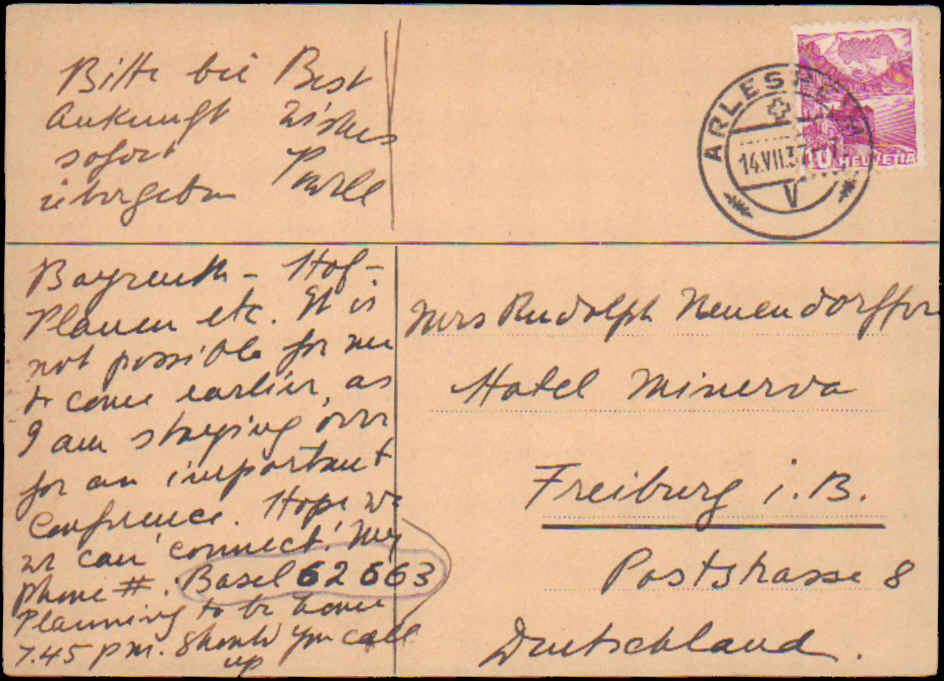 Bitte bei
Ankunft
sofort
übergeben
Best
Wishes
ARLESHEIM
14.VII.37
V
HELVETIA
Bayreuth - Hof -
Plauen etc. It is
not possible for me
to come earlier, as
I am staying over
for an important
Conference. Hope we
we can 'connect'. My
phone #. Basel 62663
Planning to be home
7.45 pm. Should you call
up
Mrs Rudolph Neuendorffer
Hotel Minerva
Freiburg i.B.
Poststrasse 8
Deutschland.